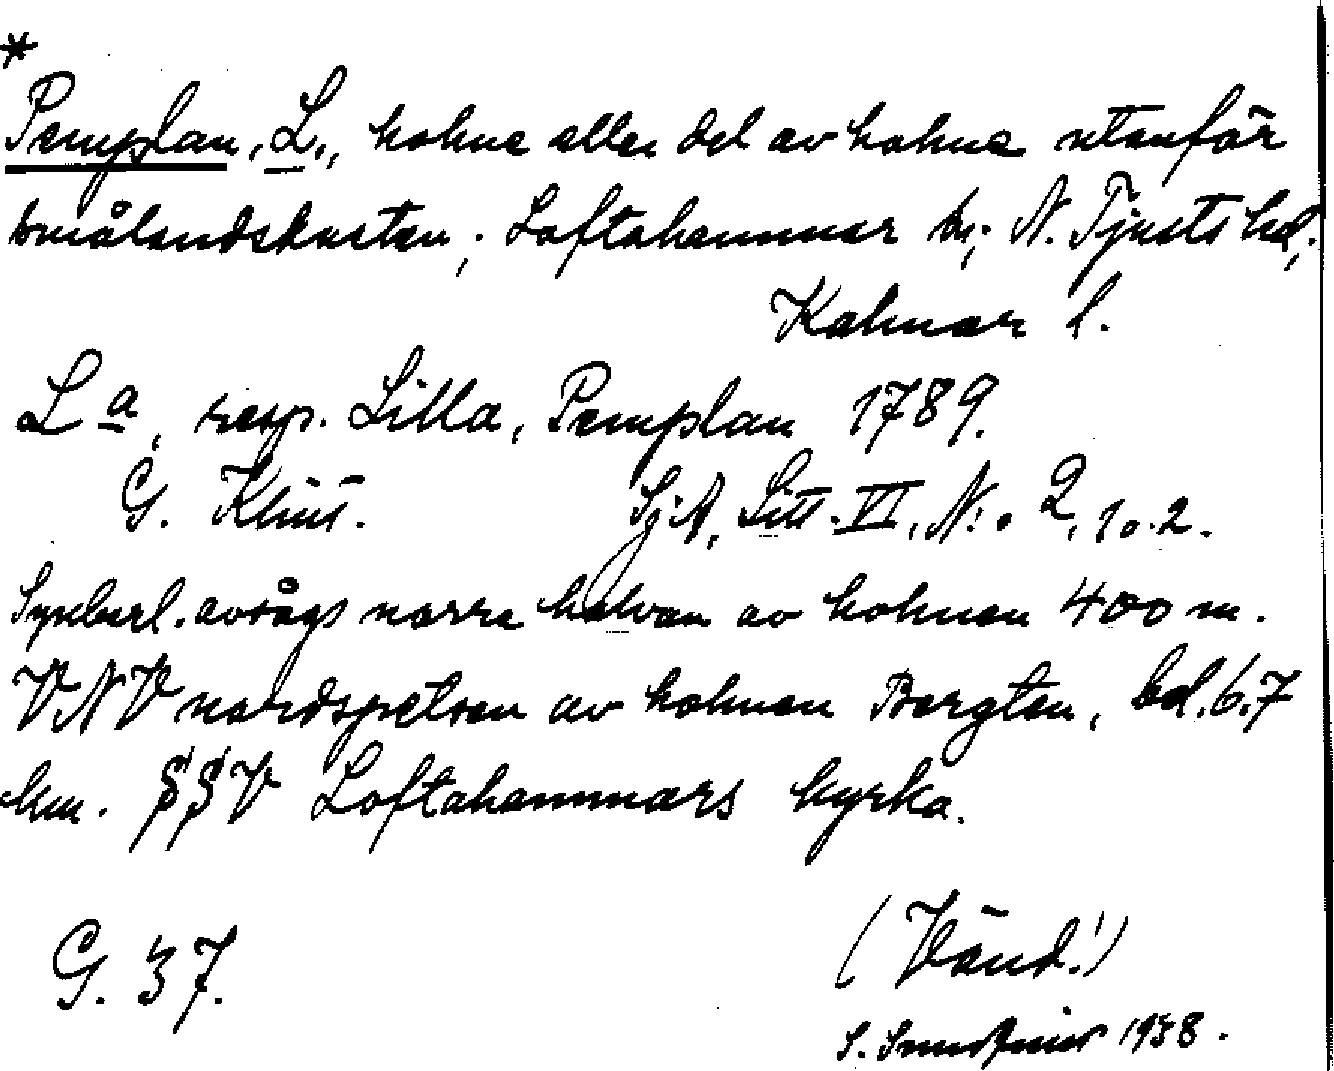 *
Pemplan, L., holme eller del av holme utanför
Smålandskusten; Loftahammar s:n; N. Tjusts hd;
Kalmar l.
L a, resp. Lilla, Pemplan 1789.
G. Klint. SjA, Litt. VI, N:o 2, 1 o. 2.
Synbarl. avsågs norra halvan av holmen 400 m.
VNV nordspetsen av holmen Bergten, bd. 6.7
km. SSV Loftahammars kyrka.
(Vänd!)
G. 37.
S. 1938.